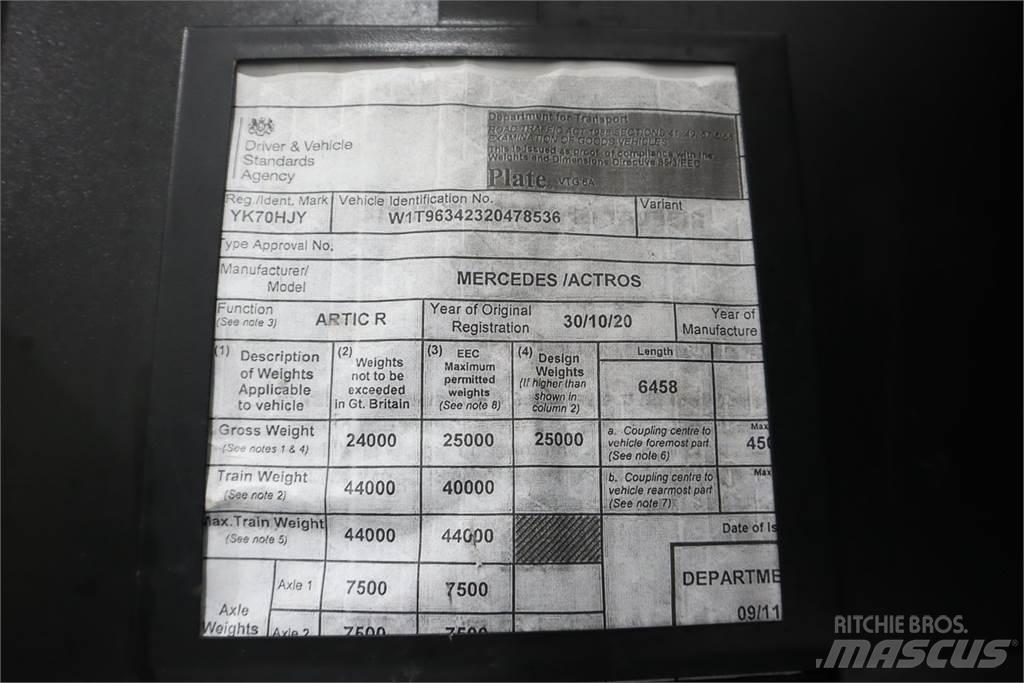 Driver & Vehicle
Standards
Agency
Department for Transport
ROAD TRAFFIC ACT 1988 SECTIONS
EXAMINATION OF GOODS VEHICLES
This is issued as proof of compliance with the
Weights and Dimensions Directive
Plate VTG 6A
Reg./Ident. Mark
YK70HJY
Vehicle Identification No.
W1T96342320478536
Variant
Type Approval No.
Manufacturer/
Model
MERCEDES /ACTROS
Function
(See note 3)
ARTIC R
Year of Original
Registration
30/10/20
Year of
Manufacture
(1) Description
of Weights
Applicable
to vehicle
(2) Weights
not to be
exceeded
in Gt. Britain
(3) EEC
Maximum
permitted
weights
(See note 8)
(4) Design
Weights
(If higher than
shown in
column 2)
Length
6458
Gross Weight
(See notes 1 & 4)
24000
25000
25000
a. Coupling centre to
vehicle foremost part
(See note 6)
Max
450
Train Weight
(See note 2)
44000
40000
b. Coupling centre to
vehicle rearmost part
(See note 7)
Max
Max.Train Weight
(See note 5)
44000
44000
Date of Is
DEPARTME
09/11
Axle
Weights
Axle 1
7500
7500
Axle 2
7500
7500
RITCHIE BROS.
MASCUS